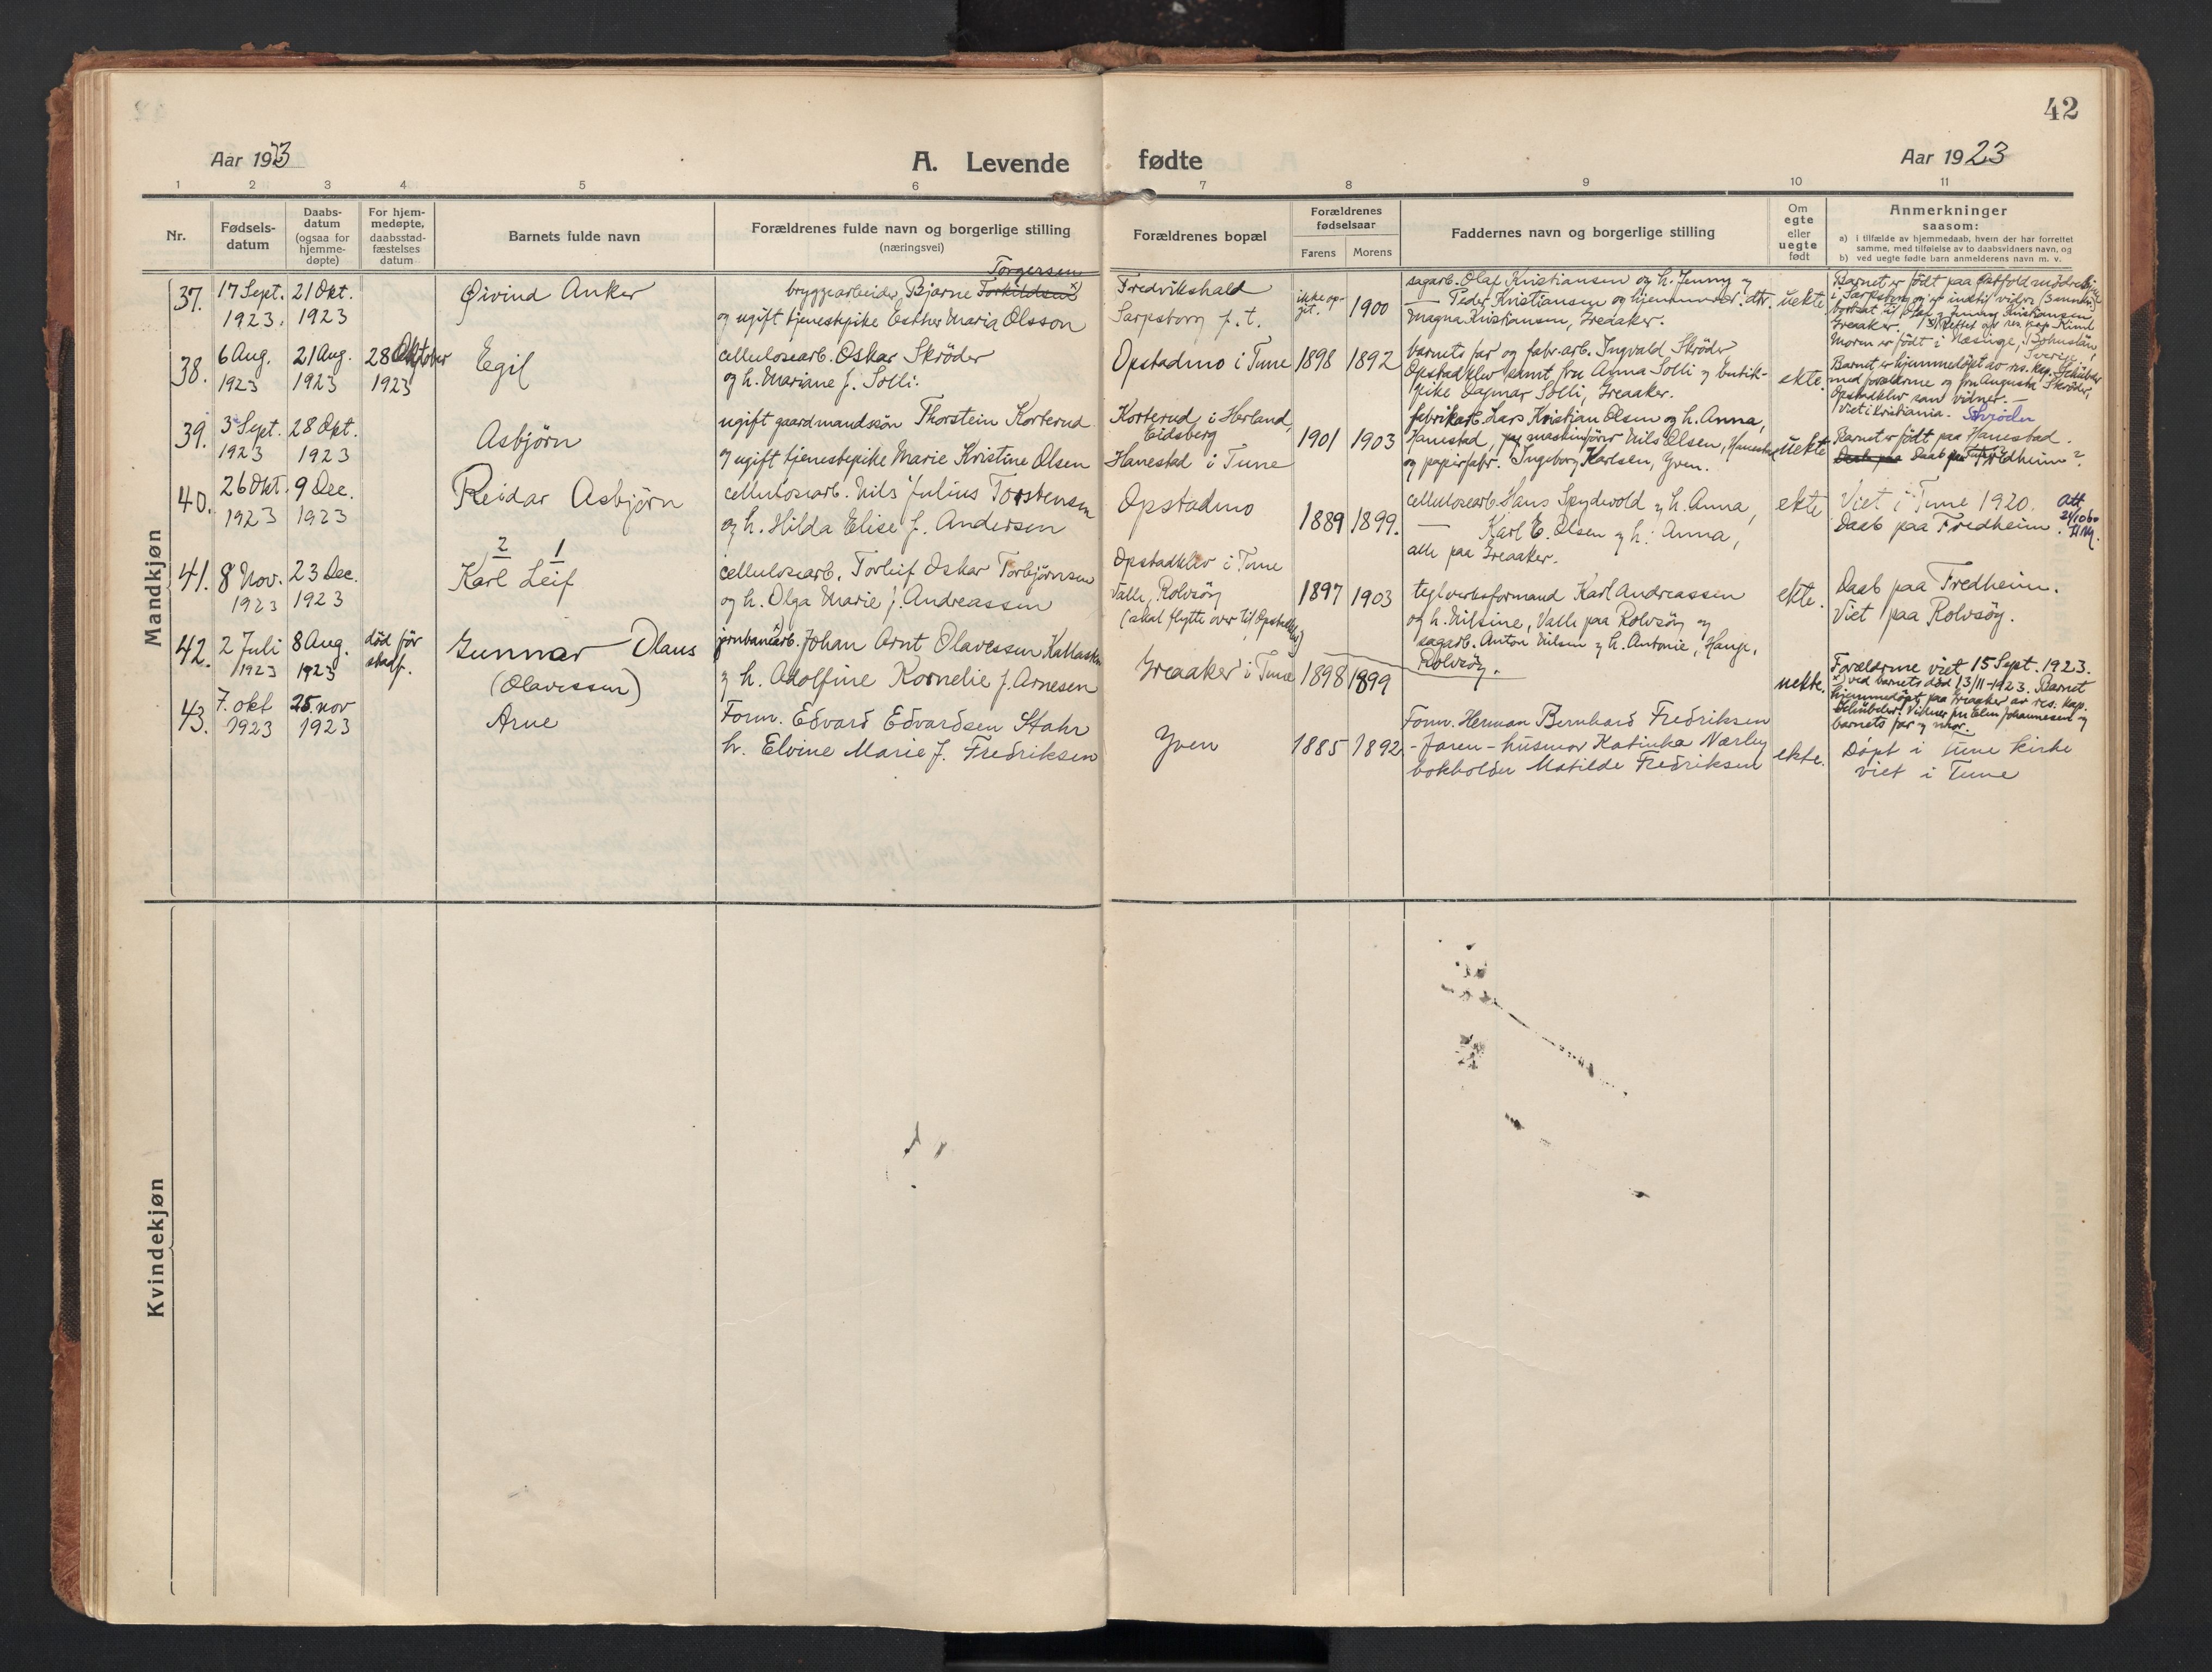 42
Aar 1923
A. Levende fødte
Aar 1923
1 2 3 4 5 6 7 8 9 10 11
Nr.
Fødsels-
datum
Daabs-
datum
(ogsaa for
hjemme-
døpte)
For hjem-
medøpte,
daabsstad-
fæstelses
datum
Barnets fulde navn
Forældrenes fulde navn og borgerlige stilling
(næringsvei)
Forældrenes bopæl
Forældrenes
fødselsaar
Farens Morens
Faddernes navn og borgerlige stilling
Om
egte
eller
uegte
født
Anmerkninger
saasom:
a) i tilfælde av hjemmedaab, hvem der har forrettet
samme, med tilføielse av to daabsvidners navn, og
b) ved uegte fødte barn anmelderens navn m. v.
Mandkjøn
37.
17 Sept.
1923.
21 Okt.
1923
Øivind Anker
Torgersen
bryggearbeider Bjarne Torkildsen x)
og ugift tjenestepike Esther Maria Olsson
Fredrikshald
Sarpsborg p. t.
ikke op-
git.
1900
sagarb. Olaf Kristiansen og h. Jenny og
— Peder Kristiansen og hjemmev. dtr.
Magna Kristiansen, Greaaker.
uekte
Barnet er født paa Østfold mødrehjem
i Sarpsborg og er indtil videre
bortsat til Olaf og Jenny Kristiansen
Greaaker.
Moren er født i Næsinge, Bohuslän,
Sverige.
38.
6 Aug.
1923
21 Aug.
1923
28 Oktober
1923
Egil
cellulosearb. Oskar Skröder
og h. Mariane f. Solli.
Opstadmo i Tune
1898 1892
barnets far og fabr.arb. Ingvald Skröder
Opstadklev samt fru Anna Solli og butik-
pike Dagmar Solli, Greaaker.
ekte.
Barnet er hjemmedöpt av res. kap. Schübeler
med forældrene og fru Augusta Skröder,
Opstadklev som vidner. —
Viet i Kristiania. Skröder
39.
3 Sept.
1923
28 Okt.
1923
Asbjörn
ugift gaardmandssön Thorstein Korterud
og ugift tjenestepike Marie Kristine Olsen
Korterud i Herland,
Eidsberg
Hanestad i Tune
1901 1903
fabrikarb. Lars Kristjan Olsen og h. Anna,
Hanestad, maskinförer Nils Olsen, Hanestad
og papirfabr. Ingeborg Karlsen, Yven.
uekte
Barnet er födt paa Hanestad.
Daab paa Fredheim.
40.
26 Okt.
1923
9 Dec.
1923
Reidar Asbjörn
cellulosearb. Nils Julius Torstensen
og h. Hilda Elise f. Andersen
Opstadmo
1889 1899.
cellulosearb. Hans Spydevold og h. Anna,
— Karl E. Olsen og h. Anna,
alle paa Greaaker.
ekte
Viet i Tune 1920.
Daab paa Fredheim.
Att.
24/10 60
41.
8 Nov.
1923
23 Dec.
1923
2 1
Karl Leif
cellulosearb. Torleif Oskar Torbjörnsen
og h. Olga Marie f. Andreassen
Opstadklev i Tune
Valle, Rolvsöy
(skal flytte over til Opstadklev)
1897 1903
teglverksformand Karl Andreassen
og h. Nilsine, Valle paa Rolvsöy og
sagarb. Anton Nilsen og h. Antonie, Hauge,
Rolvsöy.
ekte.
Daab paa Fredheim.
Viet paa Rolvsöy.
42.
2 Juli
1923
8 Aug.
1923
död för
stadf.
Gunnar Olaus
(Olavessen)
jernbanearb. Johan Arnt Olavessen
og h. Adolfine Kornelie f. Arnesen
Greaaker i Tune
1898 1899
uekte.
Forældrene viet 15 Sept. 1923.
x) ved barnets död 13/11-1923. Barnet
hjemmedöpt paa Greaaker av res. kap.
Schübeler. Vidner fru Elin Johannesen og
barnets far og mor.
43.
7. okt
1923
25. nov
1923
Arne
Form. Edvard Edvardsen Stahr
h. Elvine Marie f. Fredriksen
Yven
1885 1892
Form. Herman Bernhard Fredriksen
- faren - husmor Katinka Nærby
bokholder Matilde Fredriksen
ekte.
Döpt i Tune kirke
viet i Tune
Kvindekjøn